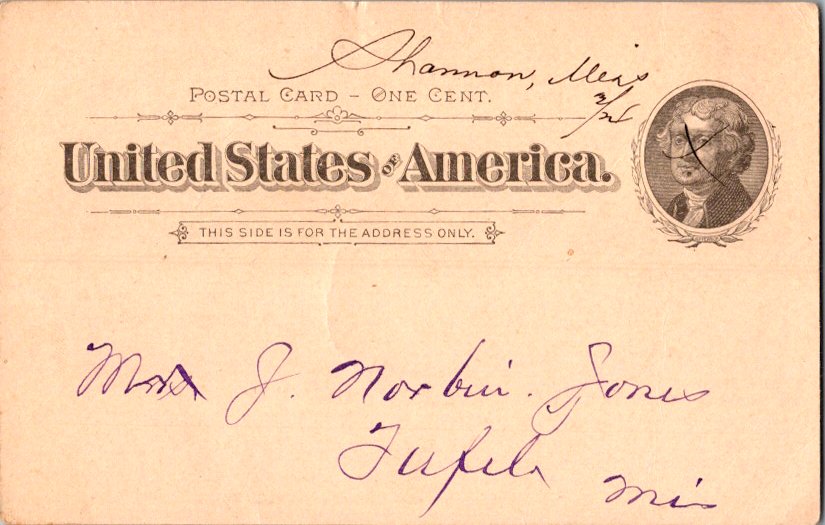 Shannon, Miss
3/24
POSTAL CARD – ONE CENT.
United States OF America.
THIS SIDE IS FOR THE ADDRESS ONLY.
J. Norbin. Jones
Miss